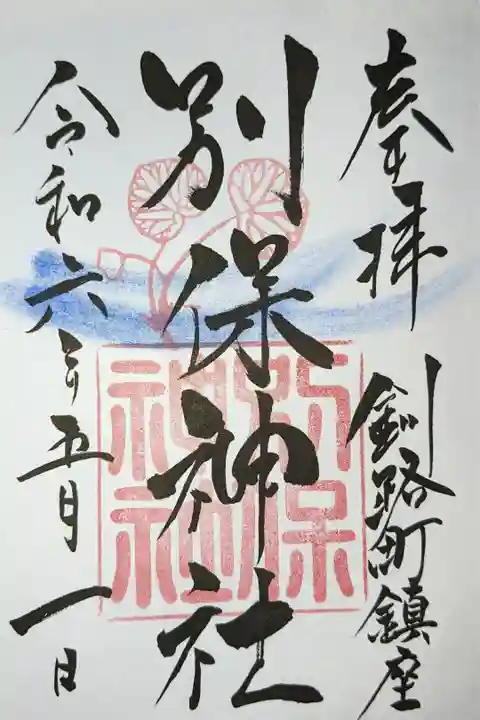 奉拝
釧路町鎮座
別保神社
別保神社
令和六年五月一日